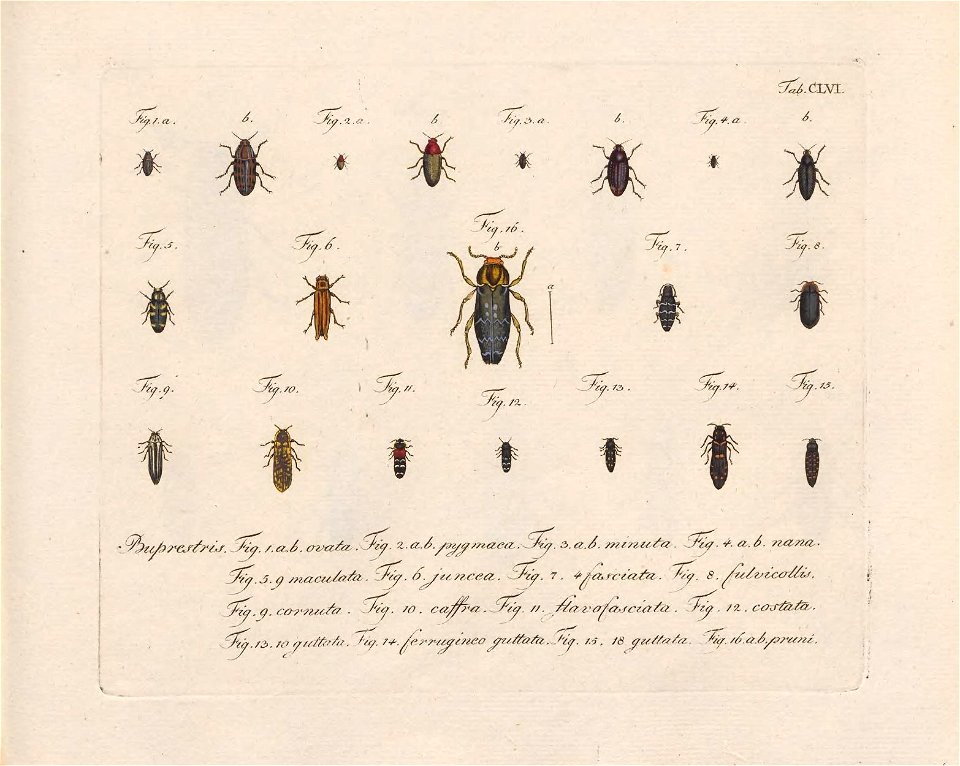 Tab. CLVI.
Fig. 1. a. b. Fig. 2. a. b Fig. 3. a. b. Fig. 4. a. b.
Fig. 5. Fig. 6. Fig. 16. Fig. 7. Fig. 8.
b a
Fig. 9. Fig. 10. Fig. 11. Fig. 12. Fig. 13. Fig. 14. Fig. 15.
Buprestris. Fig. 1. a.b. ovata. Fig. 2. a.b. pygmaea. Fig. 3. a.b. minuta. Fig. 4. a. b. nana.
Fig. 5. 9 maculata. Fig. 6. juncea. Fig. 7. 4 fasciata. Fig. 8. fulvicollis.
Fig. 9. cornuta. Fig. 10. caffra. Fig. 11. flavofasciata. Fig. 12. costata.
Fig. 13. 10 guttata. Fig. 14. ferrugineo guttata. Fig. 15. 18 guttata. Fig. 16. a.b. pruni.